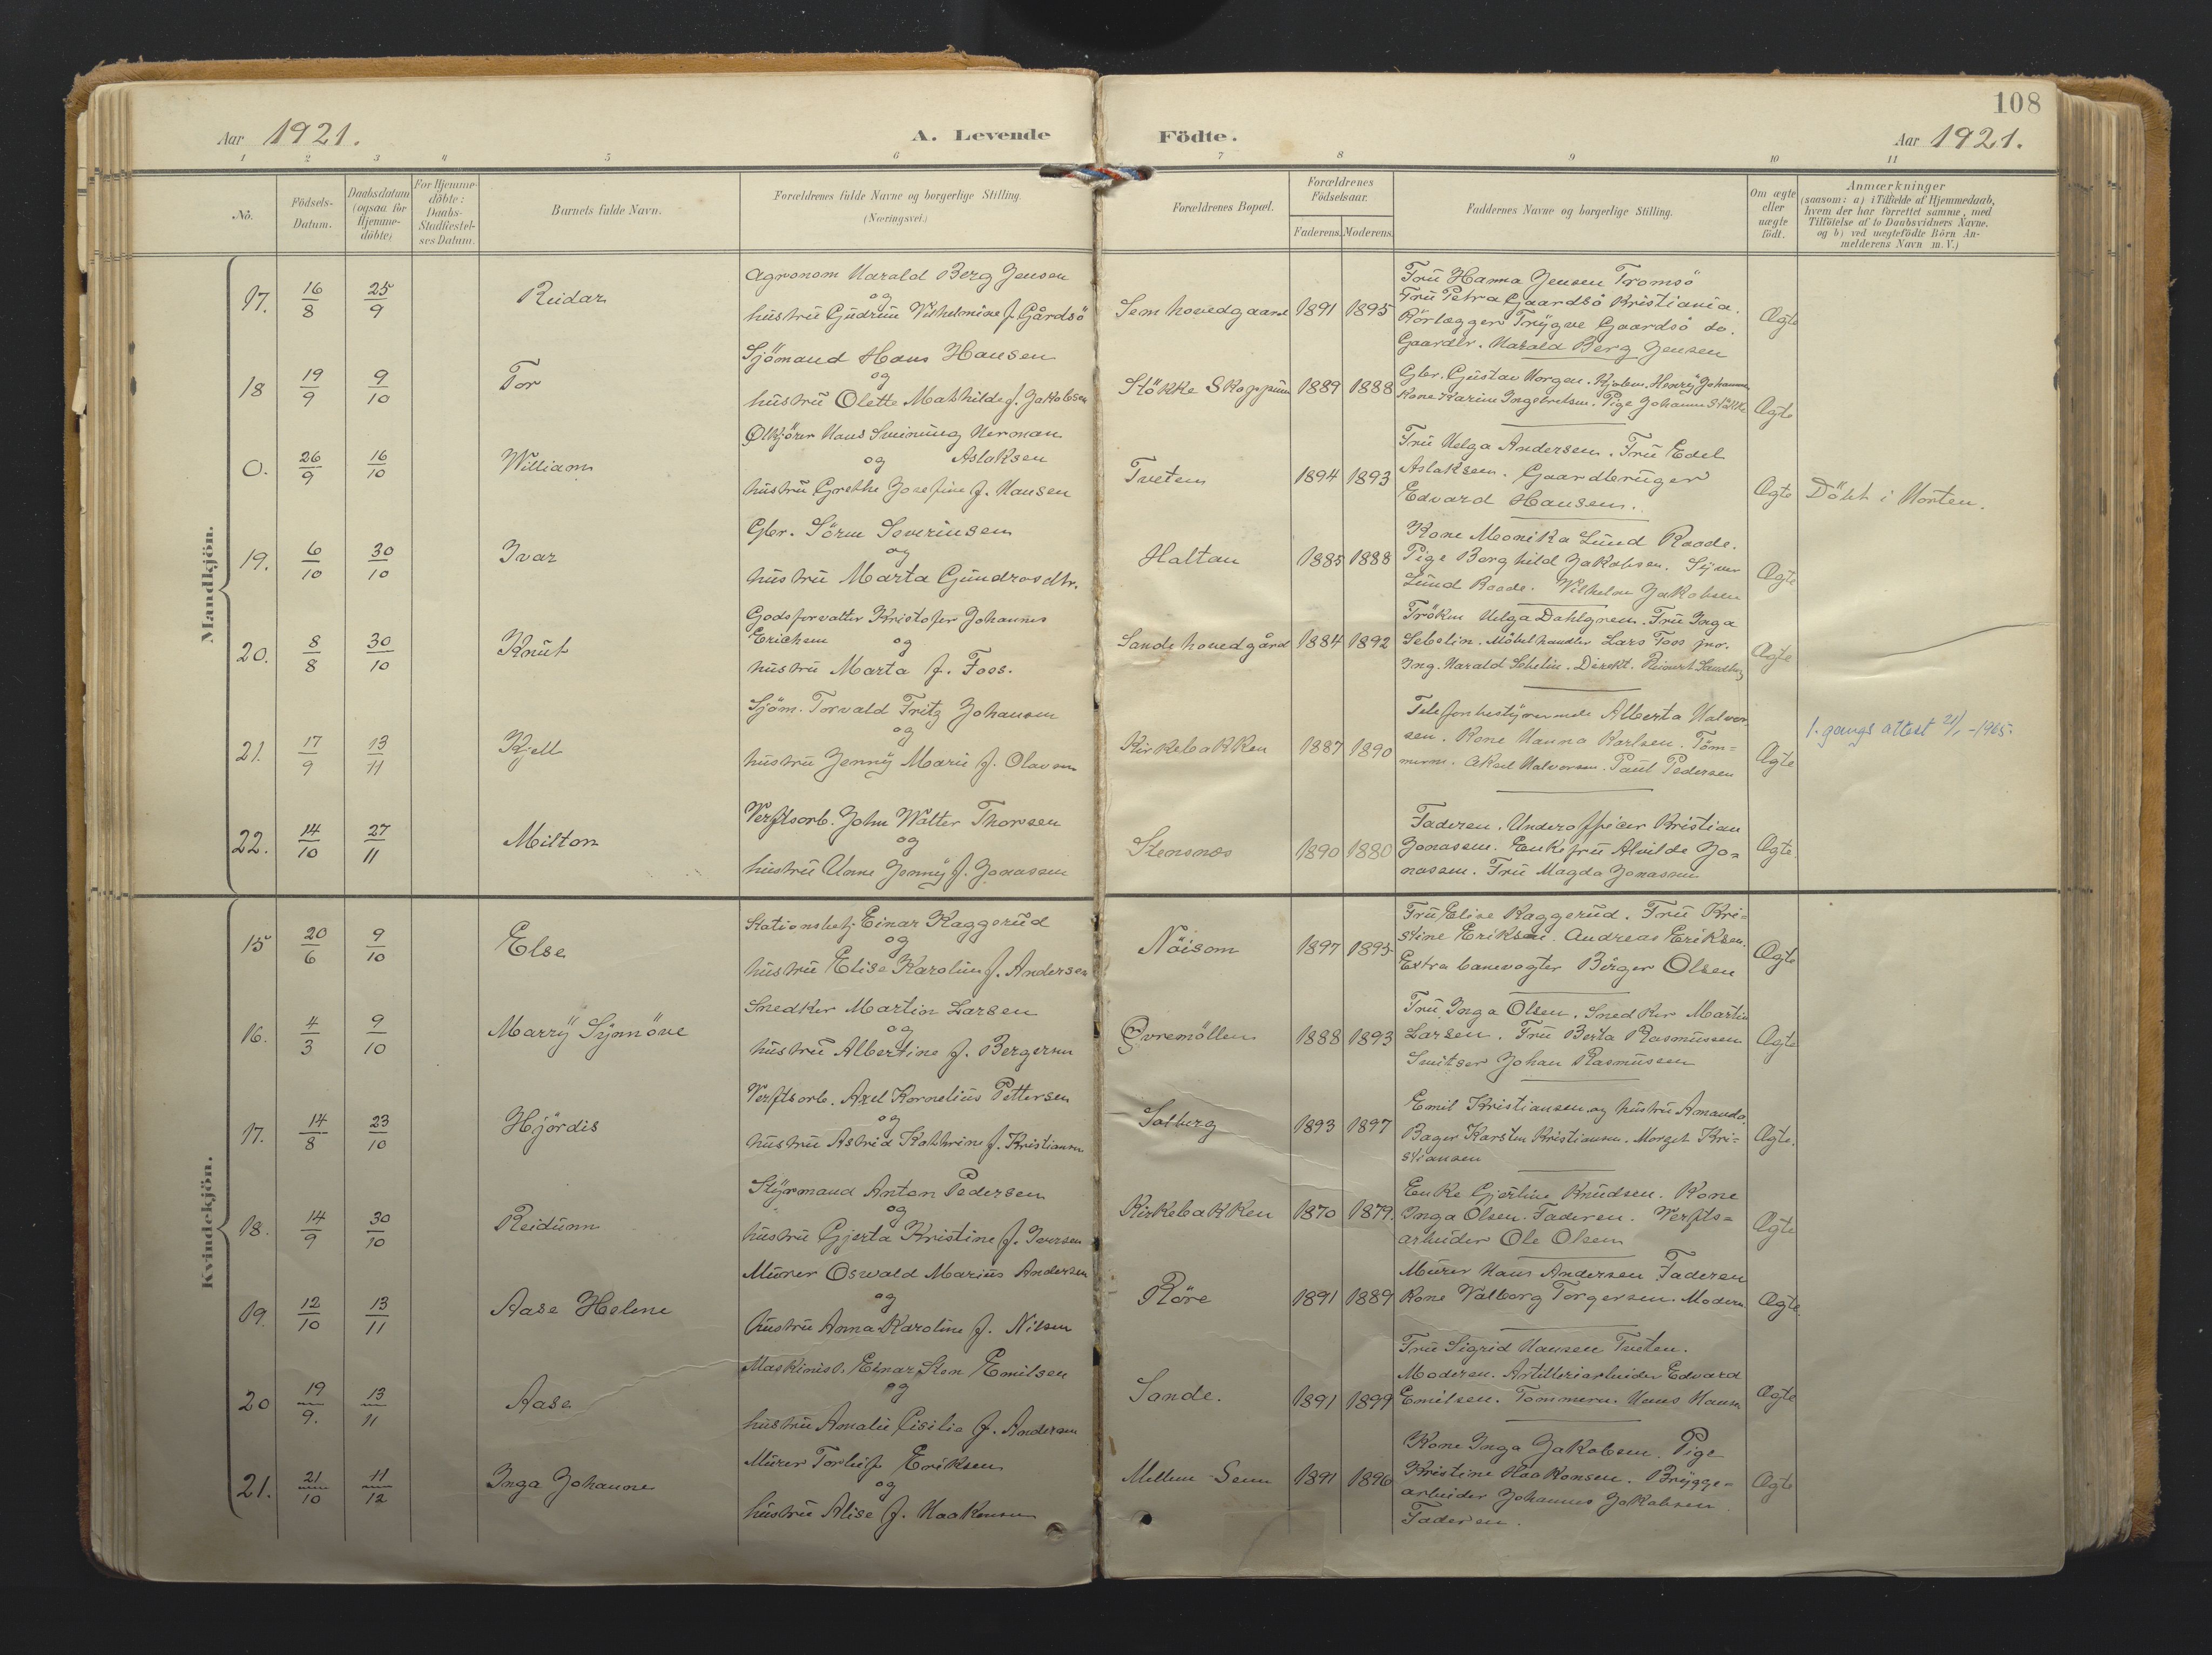 108
Aar 1921.
A. Levende Födte.
Aar 1921.
1 2 3 4 5 6 7 8 9 10 11
No.
Födsels-
Datum.
Daabsdatum
(ogsaa for
Hjemme-
döbte)
For Hjemme-
döbte:
Daabs-
Stadfæstel-
ses Datum.
Barnets fulde Navn.
Forældrenes fulde Navne og borgerlige Stilling.
(Næringsvei.)
Forældrenes Bopæl.
Forældrenes
Födselsaar.
Faderens. Moderens.
Faddernes Navne og borgerlige Stilling.
Om ægte
eller
uægte
födt.
Anmærkninger
(saasom: a) i Tilfælde af Hjemmedaab,
hvem der har forrettet samme, med
Tilföielse af to Daabsvidners Navne,
og b) ved uægtefödte Börn An-
melderens Navn m. V.)
Mandkjön.
17. 16/8 25/9 Reidar
Agronom Harald Berg Jensen
og
hustru Gudrun Vilhelmine f. Gårdsö
Sem hovedgaard 1891 1895
Fru Hanna Jensen Tromsö
Fru Petra Gaardsö Kristiania.
Rörlægger Trygve Gaardsö do.
Gaardbr. Harald Berg Jensen
Ægte
18 19/9 9/10 Tor
Sjömand Hans Hansen
og
hustru Olette Mathilde f. Jakobsen
Stökke Skoppum 1889 1888
Gbr. Gustav Horgen. Henry Johannes
Kone Karine Ingebretsen. Pige Johanne Stökke
Ægte
0. 26/9 16/10 William
Ölkjörer Hans Sveinung Herman
og Aslaksen
hustru Grethe Josefine f. Hansen
Tveten 1894 1893
Fru Helga Andersen. Fru Edel
Aslaksen. Gaardbruger
Edvard Hansen.
Ægte
Döbt i Horten.
19. 6/10 30/10 Ivar
Gbr. Sören Severinsen
og
hustru Marta Gundrosdtr.
Haltan 1885 1888
Kone Monika Lund Raade.
Pige Borghild Jakobsen. Syver
Lund Raade. Wilhelm Jakobsen
Ægte
20. 8/8 30/10 Knut
Godsforvalter Kristofer Johannes
Erichsen og
hustru Marta f. Foss.
Sande hovedgård 1884 1892
Fröken Helga Dahlgren. Fru Inga
Sebelin. Möbelhandler Lars Foss jnr.
Ing. Harald Sebelin. Direkt.
Ægte
21. 17/9 13/11 Kjell
Sjöm. Torvald Fritz Johansen
og
hustru Jenny Marie f. Olavsen
Kirkebakken 1887 1890
Telefonbestyrerinde Alberta Halvor-
sen. Kone Hanna Karlsen. Töm-
merm. Aksel Halvorsen. Paul Pedersen
Ægte
1. gangs attest 21/1 - 1965.
22. 14/10 27/11 Milton
Verftsarb. John Walter Thorsen
og
hustru Anne Jenny f. Jonassen
Stensnes 1890 1880
Faderen. Underofficer Kristian
Jonassen. Enkefru Alvilde Jo-
nassen. Fru Magda Jonassen
Ægte.
Kvindekjön.
15 20/6 9/10 Else
Stationsbetj. Einar Kaggerud
og
hustru Elise Karoline f. Andersen
Nöisom 1897 1895
Fru Elise Kaggerud. Fru Kri-
stine Eriksen. Andreas Eriksen.
Extra banevogter Birger Olsen
Ægte
16. 4/3 9/10 Marry Synnöve
Snedker Martin Larsen
og
hustru Albertine f. Bergersen
Övremöllen 1888 1893
Fru Inga Olsen. Snedker Martin
Larsen. Fru Berta Rasmussen
Switser Johan Rasmussen
Ægte
17. 14/8 23/10 Hjördis
Verftsarb. Axel Kornelius Pettersen
og
hustru Astrid Kathrine f. Kristiansen
Solberg 1893 1897
Emil Kristiansen og hustru Amanda.
Bager Karsten Kristiansen. Margit Kri-
stiansen
Ægte.
18. 14/9 30/10 Reidunn
Styrmand Anton Pedersen
og
hustru Gjerta Kristine f. Iversen
Kirkebakken 1870 1879.
Enke Gjertine Knudsen. Kone
Inga Olsen. Faderen. Verfts-
arbeider Ole Olsen
Ægte
19. 12/10 13/11 Aase Helene
Murer Oswald Marius Andersen
og
hustru Anna Karoline f. Nilsen
Röre 1891 1889
Murer Hans Andersen Faderen
Kone Valborg Torgersen. Moderen
Ægte.
20 19/9. 13/11 Aase
Maskinist. Einar Sten Emilsen
og
hustru Amalie Cisilie f. Andersen
Sande. 1891 1899
Fru Sigrid Hansen Tveten.
Moderen. Artilleriarbeider Edvard
Emilsen. Tömmerm. Hans Hansen
Ægte
21. 21/10 11/12 Inga Johanne
Murer Torleif Eriksen
og
hustru Alise f. Haakonsen
Mellem-Sem 1891 1896
Kone Inga Jakobsen. Pige
Kristine Haakonsen. Brygge-
arbeider Johannes Jakobsen
Faderen.
Ægte